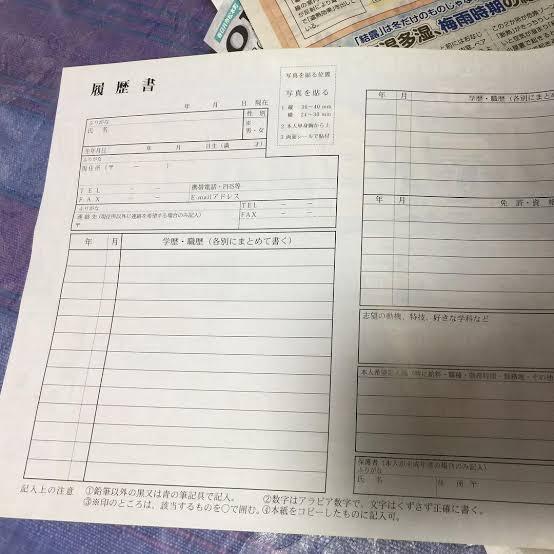 「結露」は冬だけのものじゃな
温多湿、梅雨時期の
履歴書
年 月 日 現在
写真を貼る位置
写真を貼る
1 縦 36〜40 mm
横 24〜30 mm
2 本人単身胸から上
3 両面シールで貼付
ふりがな
氏 名
性 別
※
男・女
生年月日 年 月 日生 (満 才)
ふりがな
現住所 (〒 − )
TEL − −
FAX − −
携帯電話・PHS等
E-mailアドレス
ふりがな
連絡先 (現住所以外に連絡を希望する場合のみ記入)
〒
TEL − −
FAX − −
年 月 学歴・職歴 (各別にまとめて書く)
年 月 学歴・職歴 (各別にまと
年 月 免許・資格
志望の動機、特技、好きな学科など
本人希望記入欄 (特に給料・職種・勤務時間・勤務地・その他
保護者 (本人が未成年者の場合のみ記入)
ふりがな
氏 名
住 所 〒
記入上の注意 ①鉛筆以外の黒又は青の筆記具で記入。 ②数字はアラビア数字で、文字はくずさず正確に書く。
③※印のところは、該当するものを〇で囲む。 ④本紙をコピーしたものに記入可。